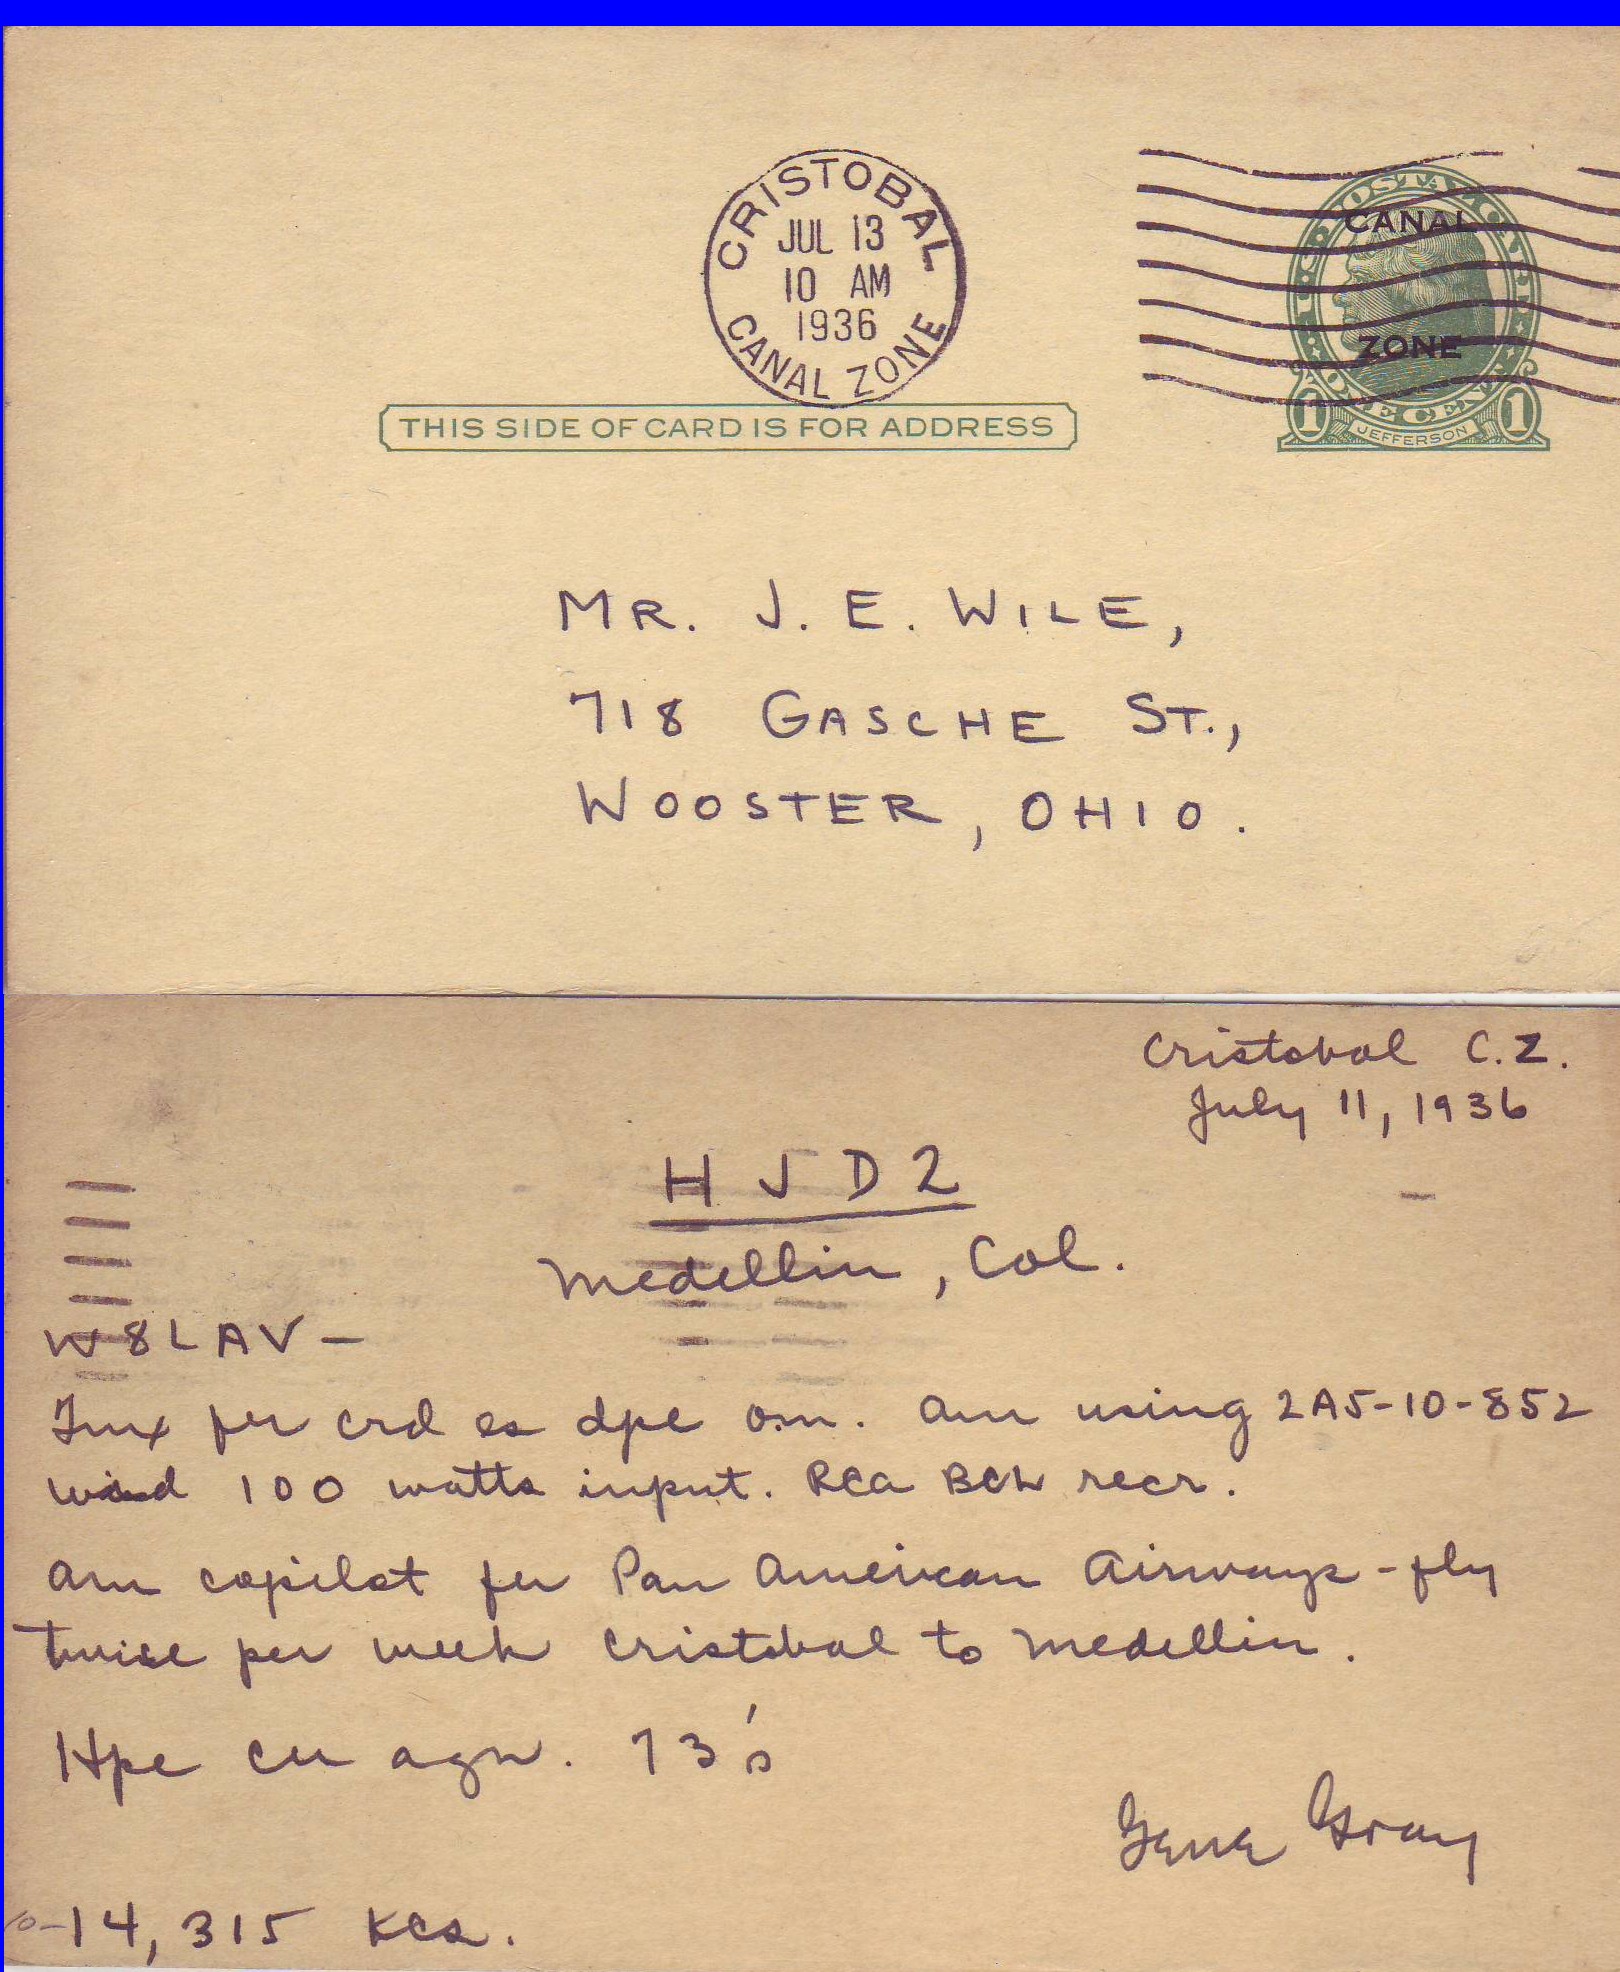 CRISTOBAL
JUL 13
10 AM
1936
CANAL ZONE
CANAL
ZONE
1 JEFFERSON 1
THIS SIDE OF CARD IS FOR ADDRESS
MR. J. E. WILE,
718 GASCHE ST.,
WOOSTER, OHIO.
Cristobal C.Z.
July 11, 1936
HJD2
Medellin, Col.
W8LAV-
Tnx fer crd es dpe om. Am using 2A5-10-852
100 watts input. RCA BCL recr.
Am copilot fer Pan American Airways - fly
twice per week Cristobal to Medellin.
Hpe cu agn. 73's
Gene Gray
14,315 Kcs.